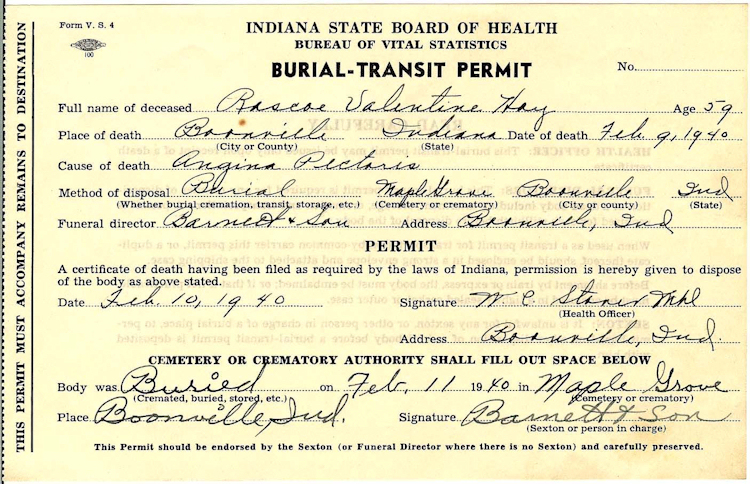 Form V. S. 4
100
INDIANA STATE BOARD OF HEALTH
BUREAU OF VITAL STATISTICS
BURIAL-TRANSIT PERMIT
No.
Full name of deceased Roscoe Valentine Hay Age 59
Place of death Boonville Indiana Date of death Feb 9, 1940
(City or County) (State)
Cause of death Angina Pectoris
Method of disposal Burial Maple Grove Boonville Ind
(Whether burial cremation, transit, storage, etc.) (Cemetery or crematory) (City or county) (State)
Funeral director Barnett & Son Address Boonville, Ind
PERMIT
A certificate of death having been filed as required by the laws of Indiana, permission is hereby given to dispose
of the body as above stated.
Date Feb. 10, 1940 Signature W. C.
(Health Officer)
Address Boonville, Ind.
CEMETERY OR CREMATORY AUTHORITY SHALL FILL OUT SPACE BELOW
Body was Buried on Feb. 11 1940 in Maple Grove
(Cremated, buried, stored, etc.) (Cemetery or crematory)
Place Boonville, Ind. Signature Barnett & Son
(Sexton or person in charge)
This Permit should be endorsed by the Sexton (or Funeral Director where there is no Sexton) and carefully preserved.
THIS PERMIT MUST ACCOMPANY REMAINS TO DESTINATION